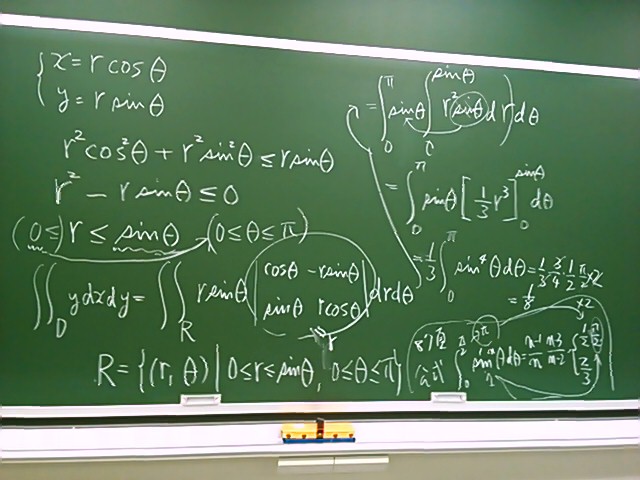 x = r cosθ
y = r sinθ
r²cos²θ + r²sin²θ ≤ r sinθ
r² − r sinθ ≤ 0
(0≤) r ≤ sinθ (0≤θ≤π)
∬_D y dx dy = ∬_R r sinθ | cosθ −r sinθ |
| sinθ r cosθ | dr dθ
r
R = {(r, θ) | 0≤r≤sinθ, 0≤θ≤π}
= ∫_0^π sinθ (∫_0^{sinθ} r² sinθ dr) dθ
= ∫_0^π sinθ [1/3 r³]_0^{sinθ} dθ
= 1/3 ∫_0^π sin⁴θ dθ = 1/3 · 3/4 · 1/2 · π/2 × 2
= π/8
×2
sinⁿθ dθ = n-1/n n-3/n-2
1/2 π/2
2/3